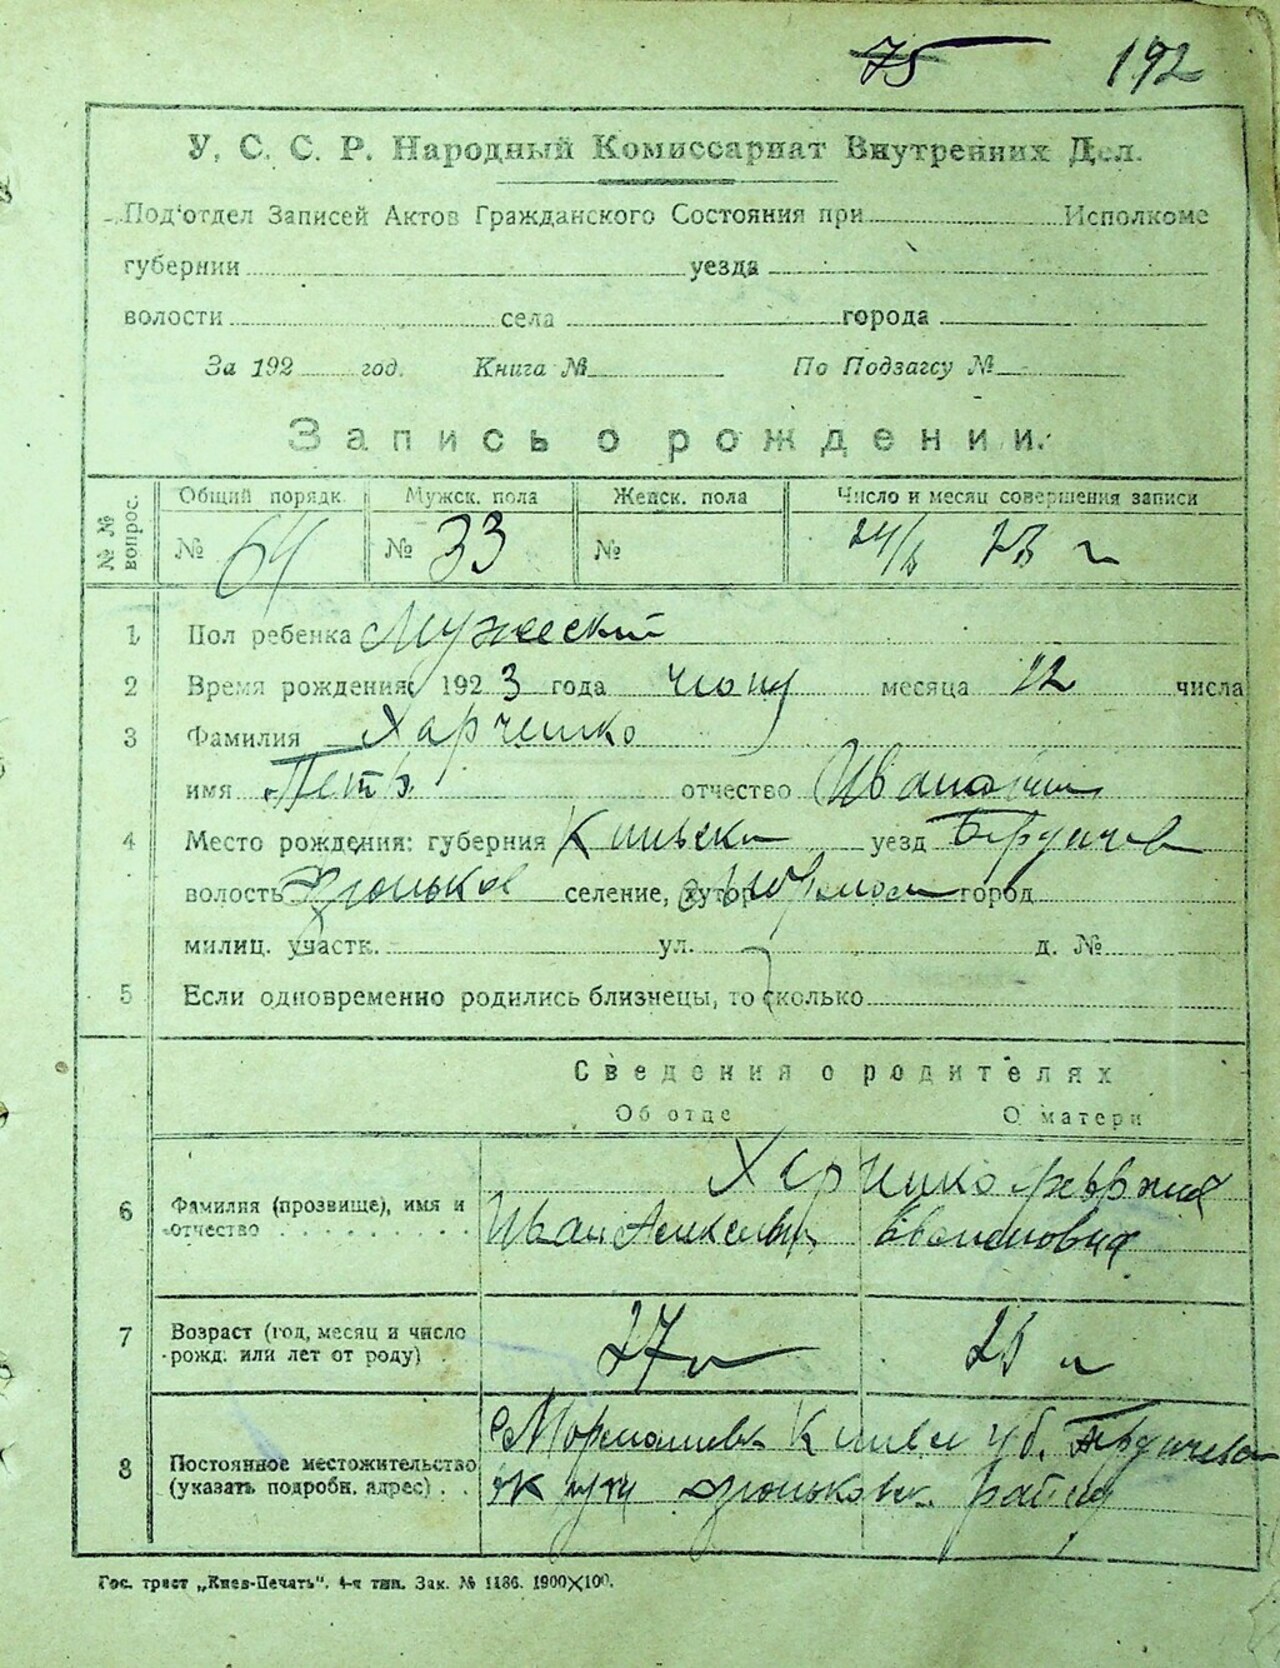 75 192
У. С. С. Р. Народный Комиссариат Внутренних Дел.
Под'отдел Записей Актов Гражданского Состояния при Исполкоме
губернии уезда
волости села города
За 192 год. Книга № По Подзагсу №
Запись о рождении.
№ № вопрос. Общий порядк. Мужск. пола Женск. пола Число и месяц совершения записи
№ 64 № 33 № 23 г
1 Пол ребенка Мужеский
2 Время рождения: 1923 года месяца 22 числа
3 Фамилия Харченко
имя Петр отчество Иванович
4 Место рождения: губерния Киевск уезд Бердичев
волость селение, хутор город
милиц. участк. ул. д. №
5 Если одновременно родились близнецы, то сколько
Сведения о родителях
Об отце О матери
6 Фамилия (прозвище), имя и Харченко
отчество Иван
7 Возраст (год, месяц и число 27 25
рожд. или лет от роду)
8 Постоянное местожительство
(указать подробн. адрес)
Гос. трест „Киев-Печать“. 4-я тип. Зак. № 1186. 1900×100.